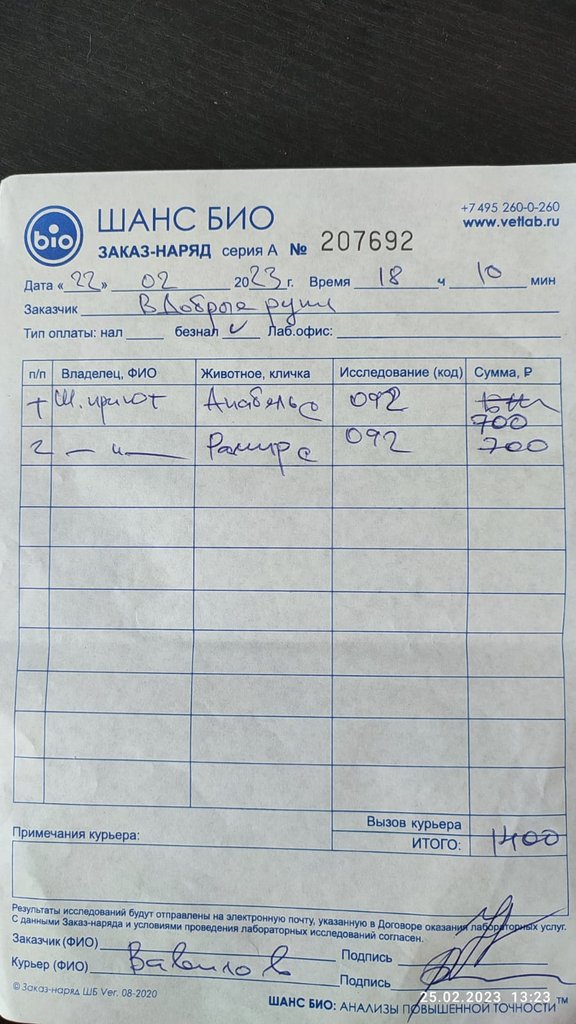 bio
ШАНС БИО
+7 495 260-0-260
www.vetlab.ru
ЗАКАЗ-НАРЯД серия А № 207692
Дата «22» 02 2023 г. Время 18 ч 10 мин
Заказчик В Добрые руки
Тип оплаты: нал безнал ✓ Лаб.офис:
п/п Владелец, ФИО Животное, кличка Исследование (код) Сумма, ₽
Анабель с 092 700
2 — и — Рамир с 092 700
Вызов курьера
ИТОГО: 1400
Примечания курьера:
Результаты исследований будут отправлены на электронную почту, указанную в Договоре оказания лабораторных услуг.
С данными Заказ-наряда и условиями проведения лабораторных исследований согласен.
Заказчик (ФИО) Подпись
Курьер (ФИО) Вавилов Подпись
© Заказ-наряд ШБ Ver. 08-2020
ШАНС БИО: АНАЛИЗЫ ПОВЫШЕННОЙ ТОЧНОСТИ™
25.02.2023 13:23